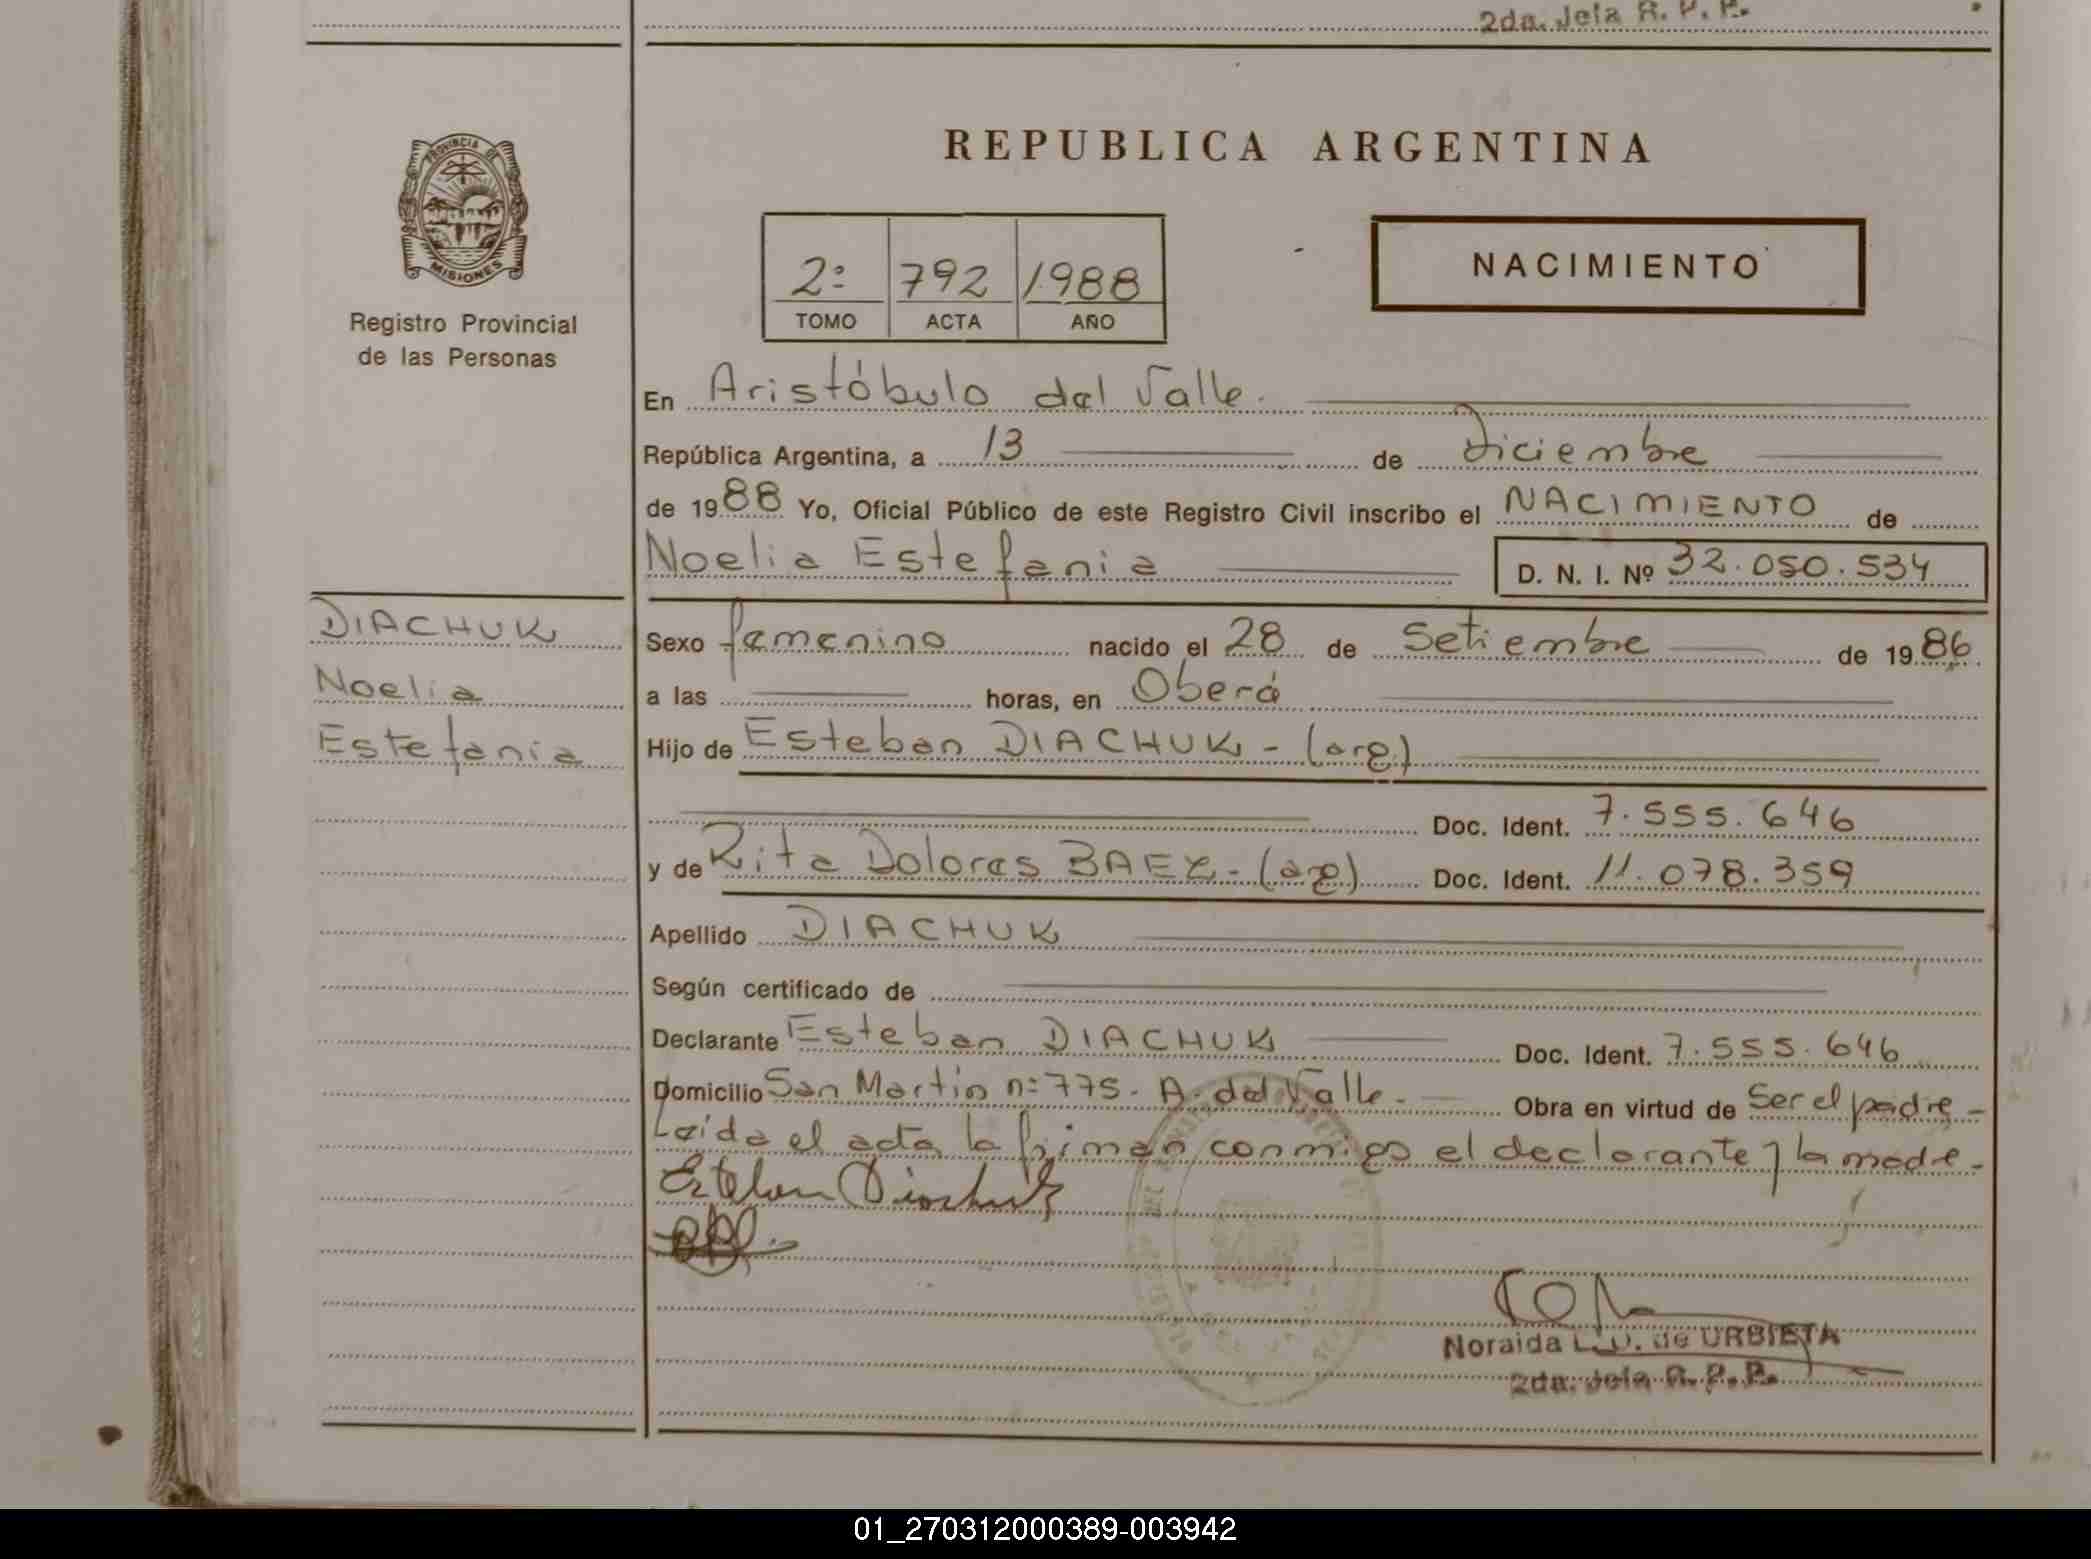 2da. Jefa R. P. P.
REPUBLICA ARGENTINA
PROVINCIA DE
MISIONES
Registro Provincial
de las Personas
2º 792 1988
TOMO ACTA AÑO
NACIMIENTO
En Aristóbulo del Valle.
República Argentina, a 13 de Diciembre
de 1988 Yo, Oficial Público de este Registro Civil inscribo el NACIMIENTO de
Noelia Estefania D. N. I. Nº 32.050.534
DIACHUK
Noelia
Estefania
Sexo femenino nacido el 28 de Setiembre de 1986
a las horas, en Oberá
Hijo de Esteban DIACHUK - (arg)
Doc. Ident. 7.555.646
y de Rita Dolores BAEZ - (arg) Doc. Ident. 11.078.359
Apellido DIACHUK
Según certificado de
Declarante Esteban DIACHUK Doc. Ident. 7.555.646
Domicilio San Martin nº 775. A. del Valle - Obra en virtud de Ser el padre -
Leída el acta la firman conmigo el declarante y la madre -
Esteban Diachuk
Noraida L. U. de URBIETA
2da. Jefa R. P. P.
01_270312000389-003942